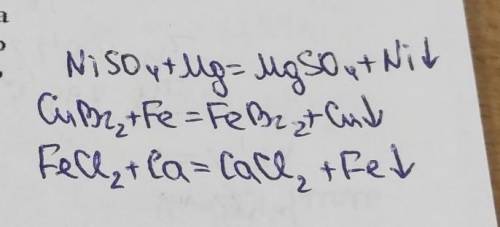 NiSO₄+Mg=MgSO₄+Ni↓
CuBr₂+Fe=FeBr₂+Cu↓
FeCl₂+Ca=CaCl₂+Fe↓